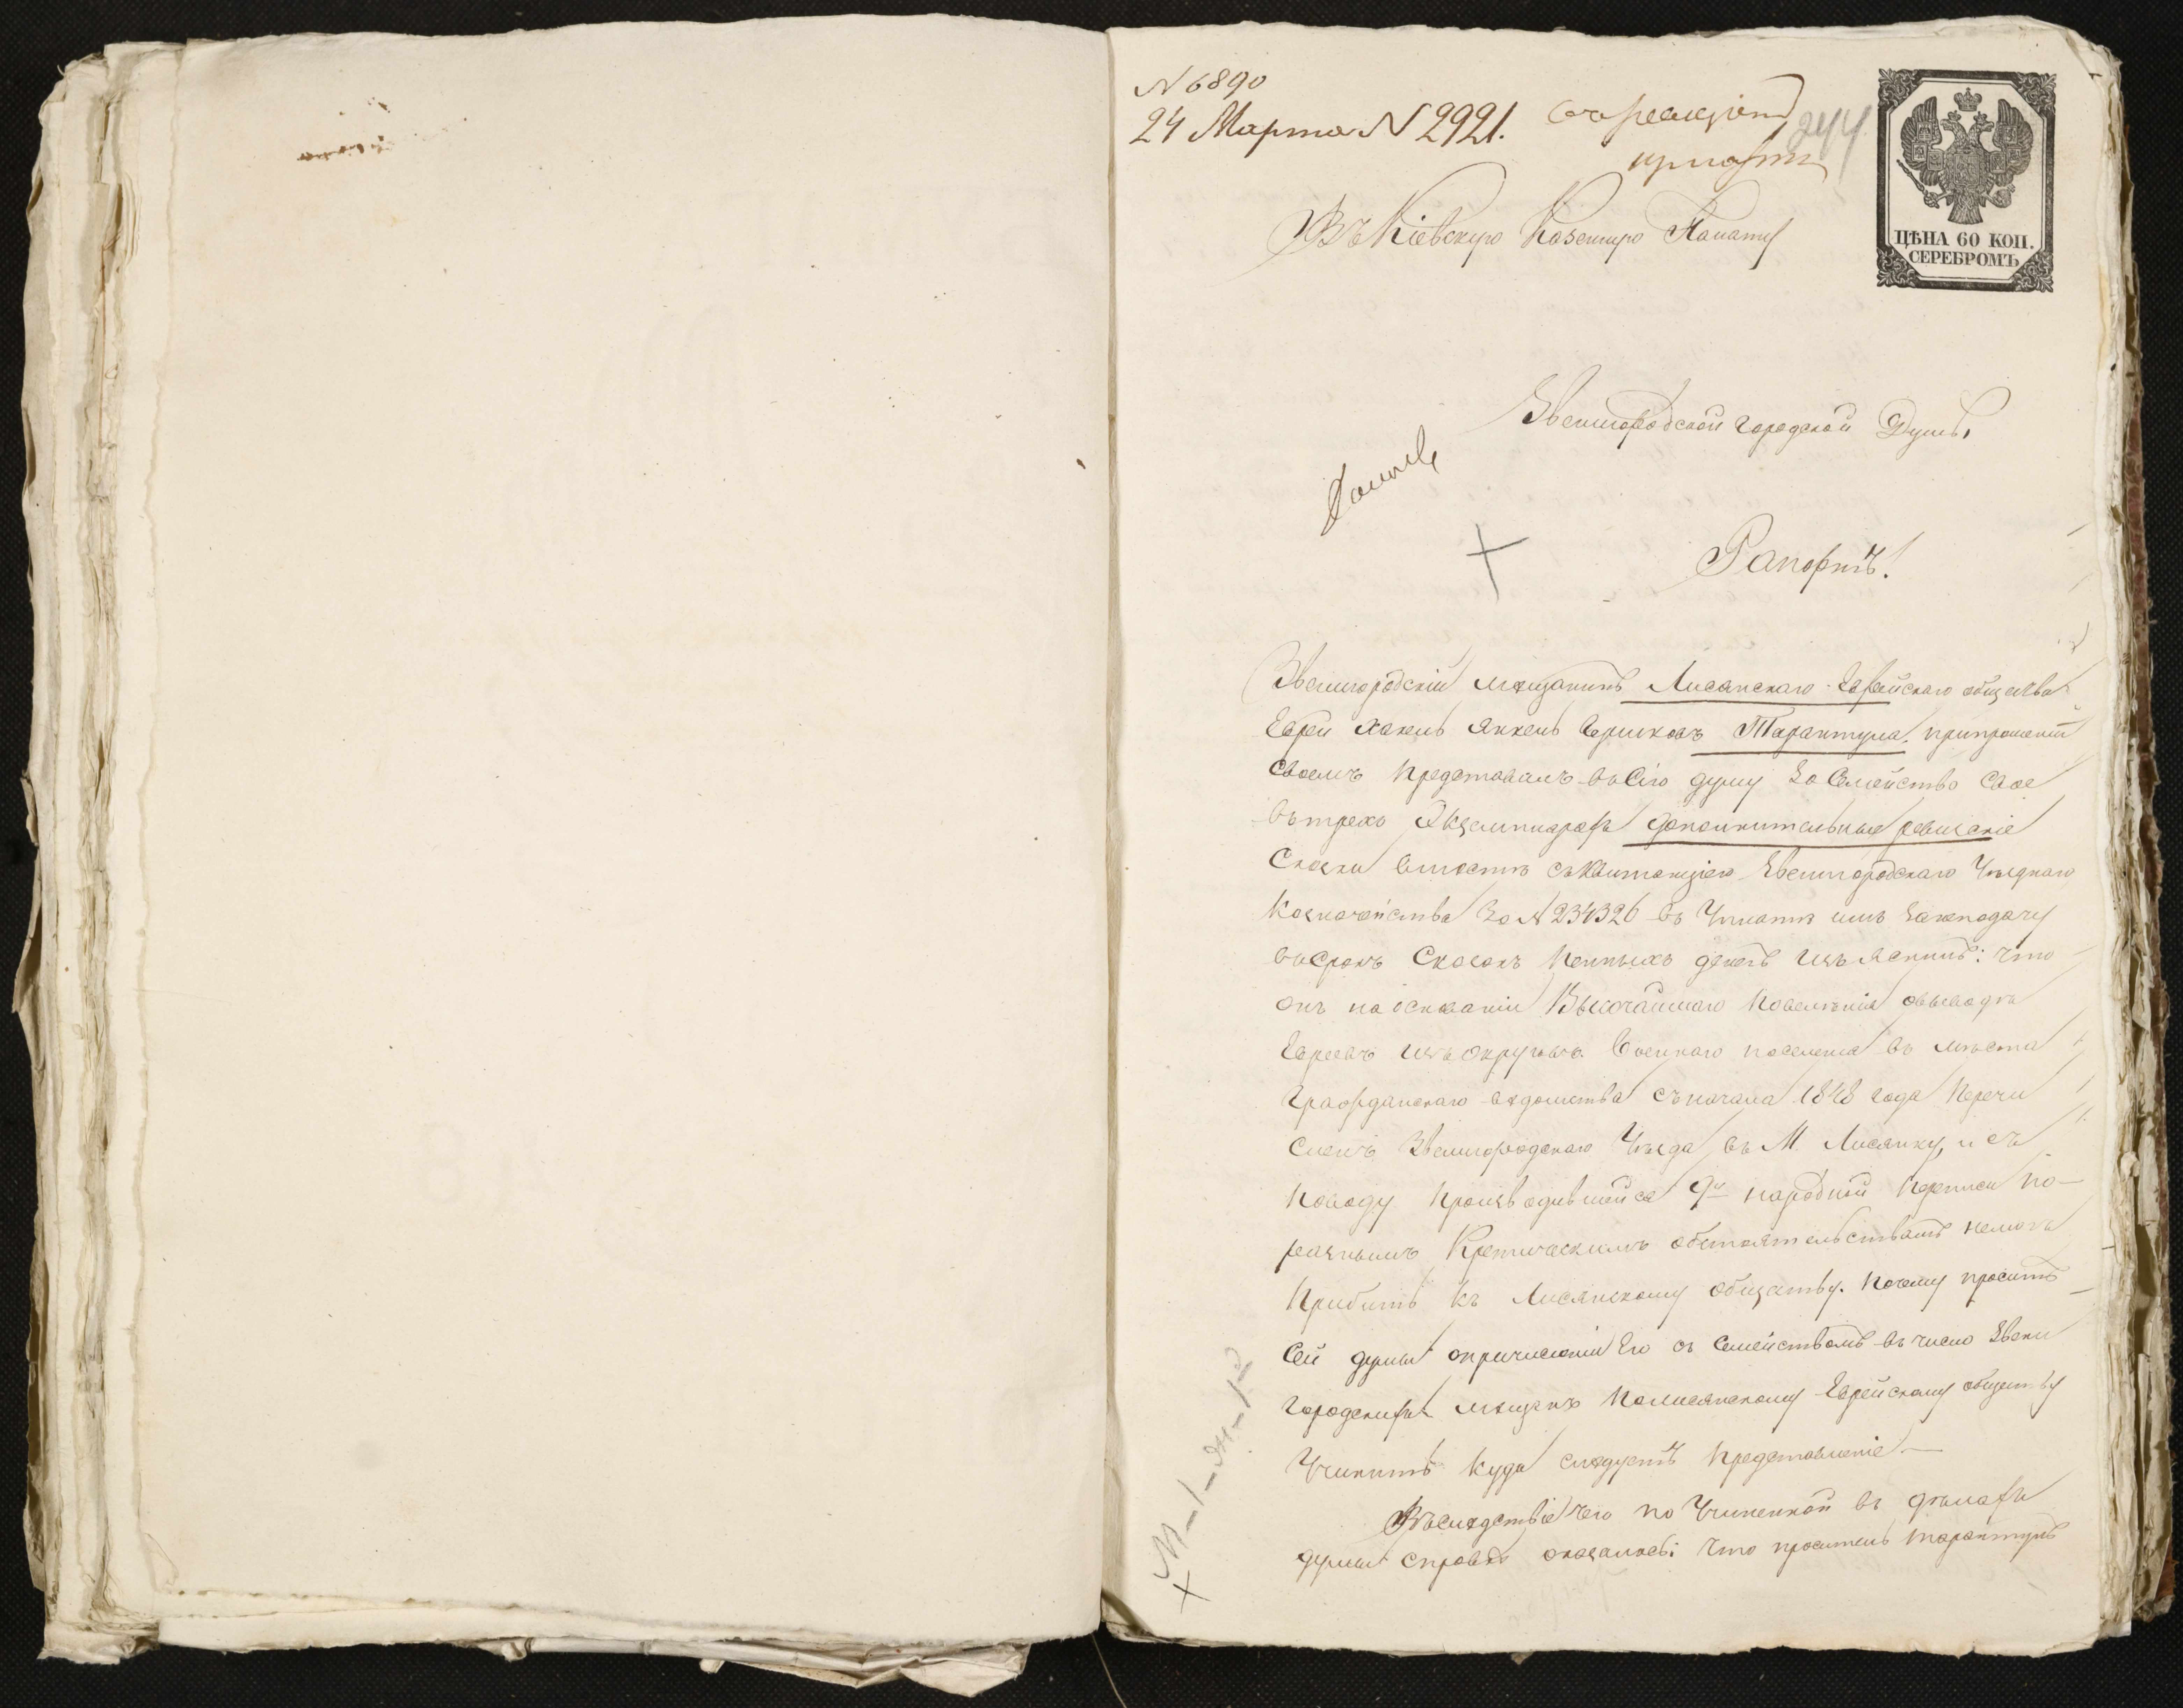 N 6890
24 Марта N 2921.
244
ЦѢНА 60 КОП.
СЕРЕБРОМЪ
Въ Кіевскую Казенную Палату
Звенигородской городской Думы,
Рапортъ!
Звенигородскій мѣщанинъ Лисянскаго Еврейскаго общества
Еврей Хакель Янкель Гершковъ Тарантула, припрошеніи
своемъ представилъ въ Сію думу За Семейство Свое
въ трехъ Экземплярахъ дополнительные ревизскіе
Сказки вмѣстѣ съ Квитанціею Звенигородскаго Уѣзднаго
Казначейства За N 234326 въ Уплатѣ имъ Занеподачу
въ Срокъ Сказокъ Пенныхъ денегъ Изъяснивъ: что
онъ на основаніи Высочайшаго Повелѣнія овыводѣ
Евреевъ изъ округовъ Военнаго поселенія въ мѣста
Гражданскаго вѣдомства съ начала 1848 года Перечи
сленъ Звенигородскаго Уѣзда въ М. Лисянку, и съ
поводу производившейся 9й народной Переписи по
разнымъ Критическимъ обстоятельствамъ немогъ
Прибыть къ Лисянскому обществу. Почему проситъ
Сей думы опричисленіи Его съ Семействомъ въ число Звени
городскихъ мѣщанъ Полисянскому Еврейскому обществу
Учинить куда слѣдуетъ представленіе.—
Въ слѣдствіе чего по Учиненной въ дѣлахъ
думы справкѣ оказалось: что проситель Тарантулъ